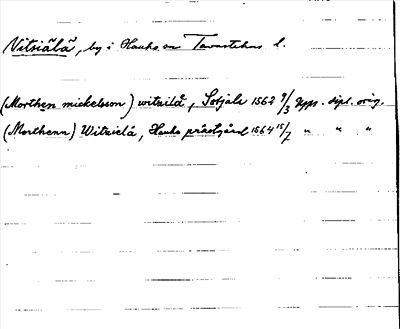 Vitsiälä, by i Hauho sn Tavastehus l.
(Morthen mickelsson) witzilä, Sotjala 1562 9/3 Upps. dipl. orig.
(Morthenn) Witzielä, Hauho prästgård 1564 15/7 " " "